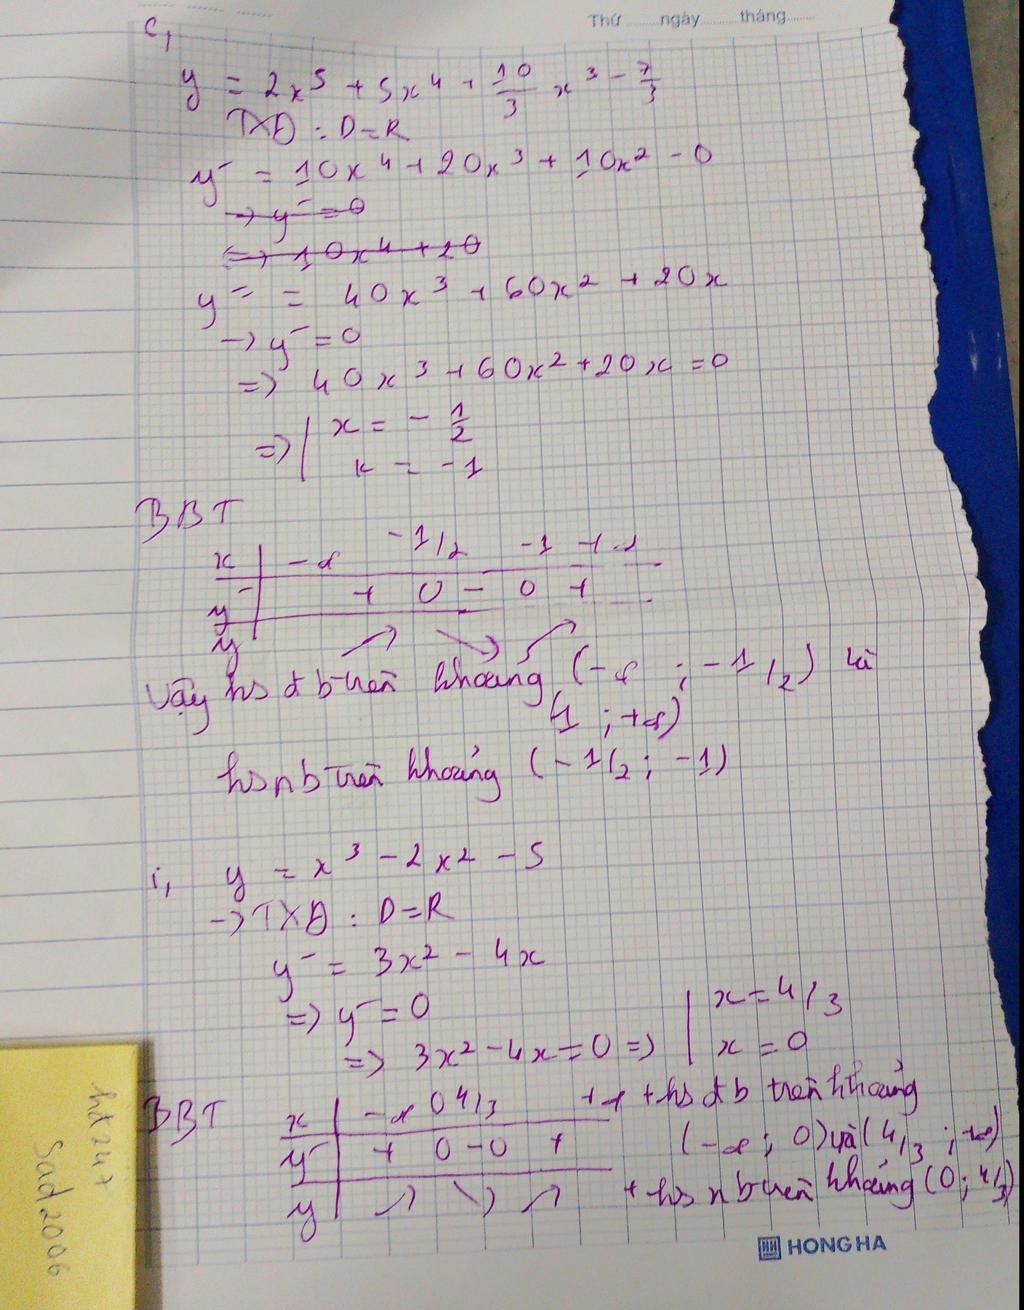 Thứ ........ ngày ........ tháng ........
c,
y = 2x⁵ + 5x⁴ + 10/3 x³ - 7/3
TXĐ : D = R
y' = 10x⁴ + 20x³ + 10x² - 0
→ y' = 0
=> 10x⁴ + 20
y'' = 40x³ + 60x² + 20x
→ y' = 0
=> 40x³ + 60x² + 20x = 0
=> | x = - 1/2
x = -1
BBT
x | -∞ -1/2 -1 +∞
y' | + 0 - 0 +
y | ↗ ↘ ↗
Vậy hs đb trên khoảng (-∞ ; -1/2) và
(1 ; +∞)
hs nb trên khoảng (-1/2 ; -1)
i, y = x³ - 2x² - 5
→ TXĐ : D = R
y' = 3x² - 4x
=> y' = 0
=> 3x² - 4x = 0 => | x = 4/3
x = 0
BBT
x | -∞ 0 4/3 +∞
y' | + 0 - 0 +
y | ↗ ↘ ↗
+ hs đb trên khoảng
(-∞ ; 0) và (4/3 ; +∞)
+ hs nb trên khoảng (0 ; 4/3)
HONG HA
hđ247
Sad2006